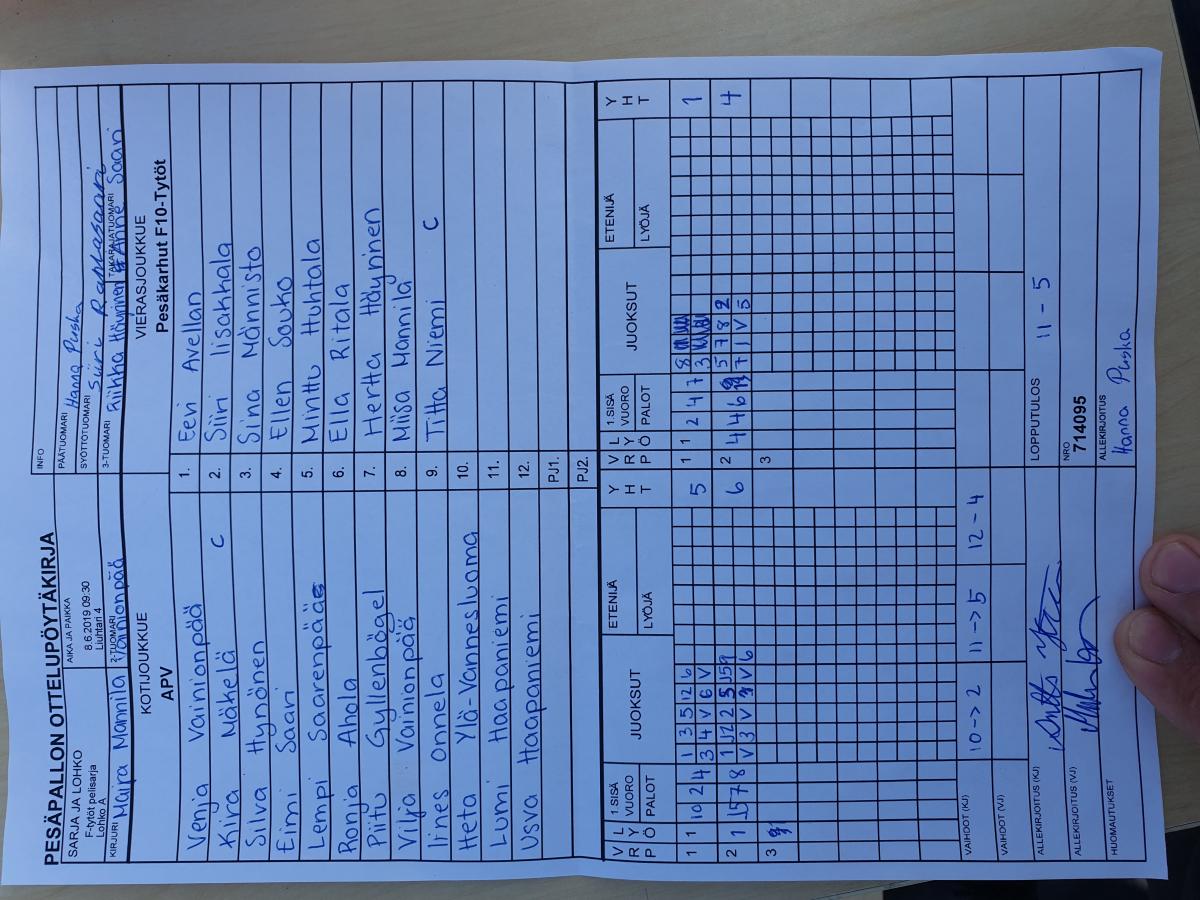 PESÄPALLON OTTELUPÖYTÄKIRJA
INFO
SARJA JA LOHKO
F-tytöt pelisarja
Lohko A
AIKA JA PAIKKA
8.6.2019 09:30
Liuhtari 4
PÄÄTUOMARI Hanna Puska
SYÖTTÖTUOMARI Siiri
KIRJURI Maira Mannila
2-TUOMARI Vainionpää
3-TUOMARI Riikka Häyrinen
TAKARAJATUOMARI Anne Saari
KOTIJOUKKUE
APV
VIERASJOUKKUE
Pesäkarhut F10-Tytöt
Venja Vainionpää 1. Eevi Avellan
Kira Mäkelä C 2. Siiri Iisakkala
Silva Hynönen 3. Siina Männistö
Eimi Saari 4. Ellen Souko
Lempi Saarenpää 5. Minttu Huhtala
Ronja Ahola 6. Ella Ritala
Piitu Gyllenbögel 7. Hertta Häyrinen
Vilja Vainionpää 8. Miisa Mannila
Iines Onnela 9. Titta Niemi C
Heta Ylä-Vannesluoma 10.
Lumi Haapaniemi 11.
Usva Haapaniemi 12.
PJ1.
PJ2.
VRP LYÖ 1.SISÄ VUORO PALOT JUOKSUT ETENIJÄ LYÖJÄ YHT VRP LYÖ 1.SISÄ VUORO PALOT JUOKSUT ETENIJÄ LYÖJÄ YHT
1 1 10 2 4 1 3 5 12 6 5 1 1 2 4 7 8 1
3 4 V 6 V 3
2 1 6 2 4 4 6 5 7 8 2 4
7 1 V 5
3 3
VAIHDOT (KJ) 10->2 11->5 12-4
VAIHDOT (VJ)
ALLEKIRJOITUS (KJ)
LOPPUTULOS 11 - 5
ALLEKIRJOITUS (VJ)
NRO
714095
HUOMAUTUKSET
ALLEKIRJOITUS
Hanna Puska